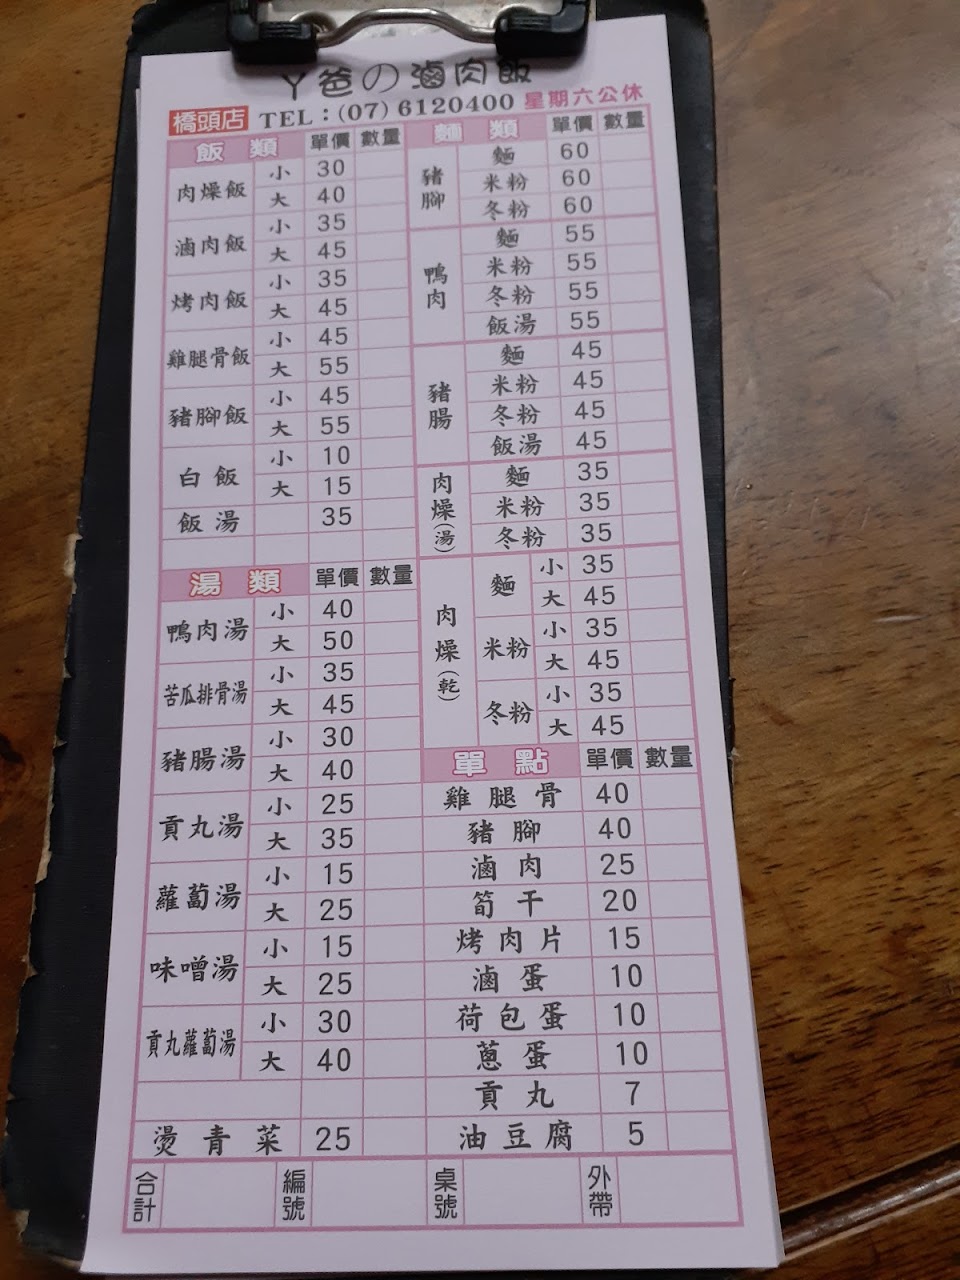 ㄚ爸の滷肉飯
橋頭店 TEL:(07)6120400 星期六公休
飯類 單價 數量
肉燥飯 小 30
大 40
滷肉飯 小 35
大 45
烤肉飯 小 35
大 45
雞腿骨飯 小 45
大 55
豬腳飯 小 45
大 55
白飯 小 10
大 15
飯湯 35
湯類 單價 數量
鴨肉湯 小 40
大 50
苦瓜排骨湯 小 35
大 45
豬腸湯 小 30
大 40
貢丸湯 小 25
大 35
蘿蔔湯 小 15
大 25
味噌湯 小 15
大 25
貢丸蘿蔔湯 小 30
大 40
燙青菜 25
麵類 單價 數量
豬腳 麵 60
米粉 60
冬粉 60
鴨肉 麵 55
米粉 55
冬粉 55
飯湯 55
豬腸 麵 45
米粉 45
冬粉 45
飯湯 45
肉燥(湯) 麵 35
米粉 35
冬粉 35
肉燥(乾) 麵 小 35
大 45
米粉 小 35
大 45
冬粉 小 35
大 45
單點 單價 數量
雞腿骨 40
豬腳 40
滷肉 25
筍干 20
烤肉片 15
滷蛋 10
荷包蛋 10
蔥蛋 10
貢丸 7
油豆腐 5
合計 編號 桌號 外帶